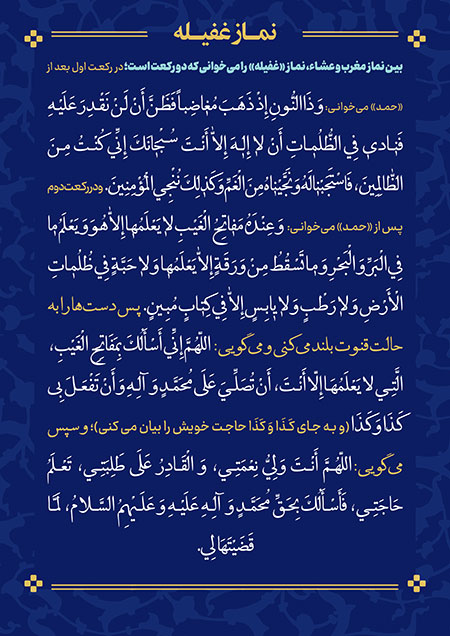 نماز غفیله
بین نماز مغرب و عشاء، نماز «غفیله» را می‌خوانی که دو رکعت است؛ در رکعت اول بعد از
«حمد» می‌خوانی: وَ ذَا النُّونِ إِذْ ذَهَبَ مُغَاضِباً فَظَنَّ أَنْ لَنْ نَقْدِرَ عَلَيْهِ
فَنَادَى فِي الظُّلُمَاتِ أَنْ لا إِلَهَ إِلاَّ أَنْتَ سُبْحَانَكَ إِنِّي كُنْتُ مِنَ
الظَّالِمِينَ، فَاسْتَجَبْنَا لَهُ وَ نَجَّيْنَاهُ مِنَ الْغَمِّ وَ كَذٰلِكَ نُنْجِي الْمُؤْمِنِينَ. و در رکعت دوم
پس از «حمد» می‌خوانی: وَ عِنْدَهُ مَفَاتِحُ الْغَيْبِ لا يَعْلَمُهَا إِلاَّ هُوَ وَ يَعْلَمُ مَا
فِي الْبَرِّ وَ الْبَحْرِ وَ مَا تَسْقُطُ مِنْ وَرَقَةٍ إِلاَّ يَعْلَمُهَا وَ لا حَبَّةٍ فِي ظُلُمَاتِ
الْأَرْضِ وَ لا رَطْبٍ وَ لا يَابِسٍ إِلاَّ فِي كِتَابٍ مُبِينٍ. پس دست‌ها را به
حالت قنوت بلند می‌کنی و می‌گویی: اللّٰهُمَّ إِنِّي أَسْأَلُكَ بِمَفَاتِحِ الْغَيْبِ،
الَّتِي لا يَعْلَمُهَا إِلّا أَنْتَ، أَنْ تُصَلِّيَ عَلَى مُحَمَّدٍ وَ آلِهِ وَ أَنْ تَفْعَلَ بِي
كَذَا وَ كَذَا (و به جای کَذَا وَ کَذَا حاجت خویش را بیان می کنی)؛ و سپس
می‌گویی: اللّٰهُمَّ أَنْتَ وَلِيُّ نِعْمَتِي، وَ الْقَادِرُ عَلَى طَلِبَتِي، تَعْلَمُ
حَاجَتِي، فَأَسْأَلُكَ بِحَقِّ مُحَمَّدٍ وَ آلِهِ عَلَيْهِ وَ عَلَيْهِمُ السَّلامُ، لَمَّا
قَضَيْتَهَا لِي.